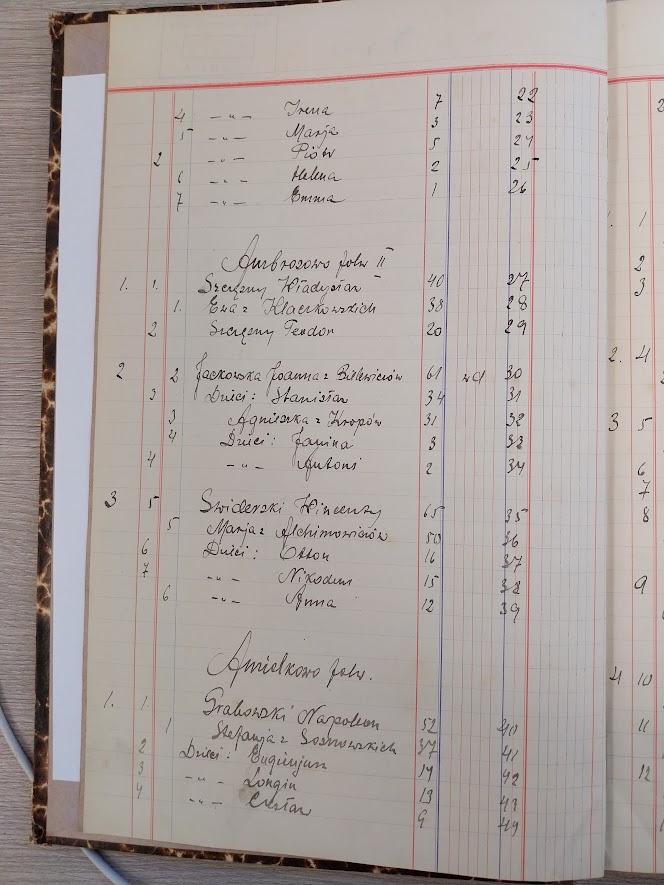 4 -"- Irena 7 22
5 -"- Marja 3 23
2 -"- Piotr 5 24
6 -"- Helena 2 25
7 -"- Emma 1 26
Ambrosowo folw II
1. 1. Szczęsny Władysław 40 27
1. Ewa z Klaczkowskich 38 28
2 Szczęsny Teodor 20 29
2 2 Jackowska Joanna z Bilewiczów 61 wd 30
3 Dzieci: Stanisław 34 31
3 Agnieszka z Kropów 31 32
4 Dzieci: Janina 3 33
4 -"- Antoni 2 34
3 5 Swiderski Wincenty 65 35
5 Marja z Alchimowiczów 50 36
6 Dzieci: Otton 16 37
7 -"- Nikodem 15 38
6 -"- Anna 12 39
Amielkowo folw.
1. 1. Grabowski Napoleon 52 40
1 Stefanja z Sosnowskich 37 41
2 Dzieci: Eugenjusz 14 42
3 -"- Longin 13 43
4 -"- Czesław 9 44
1
2
3
2. 4
3 5
6
7
8
9
4 10
11
12